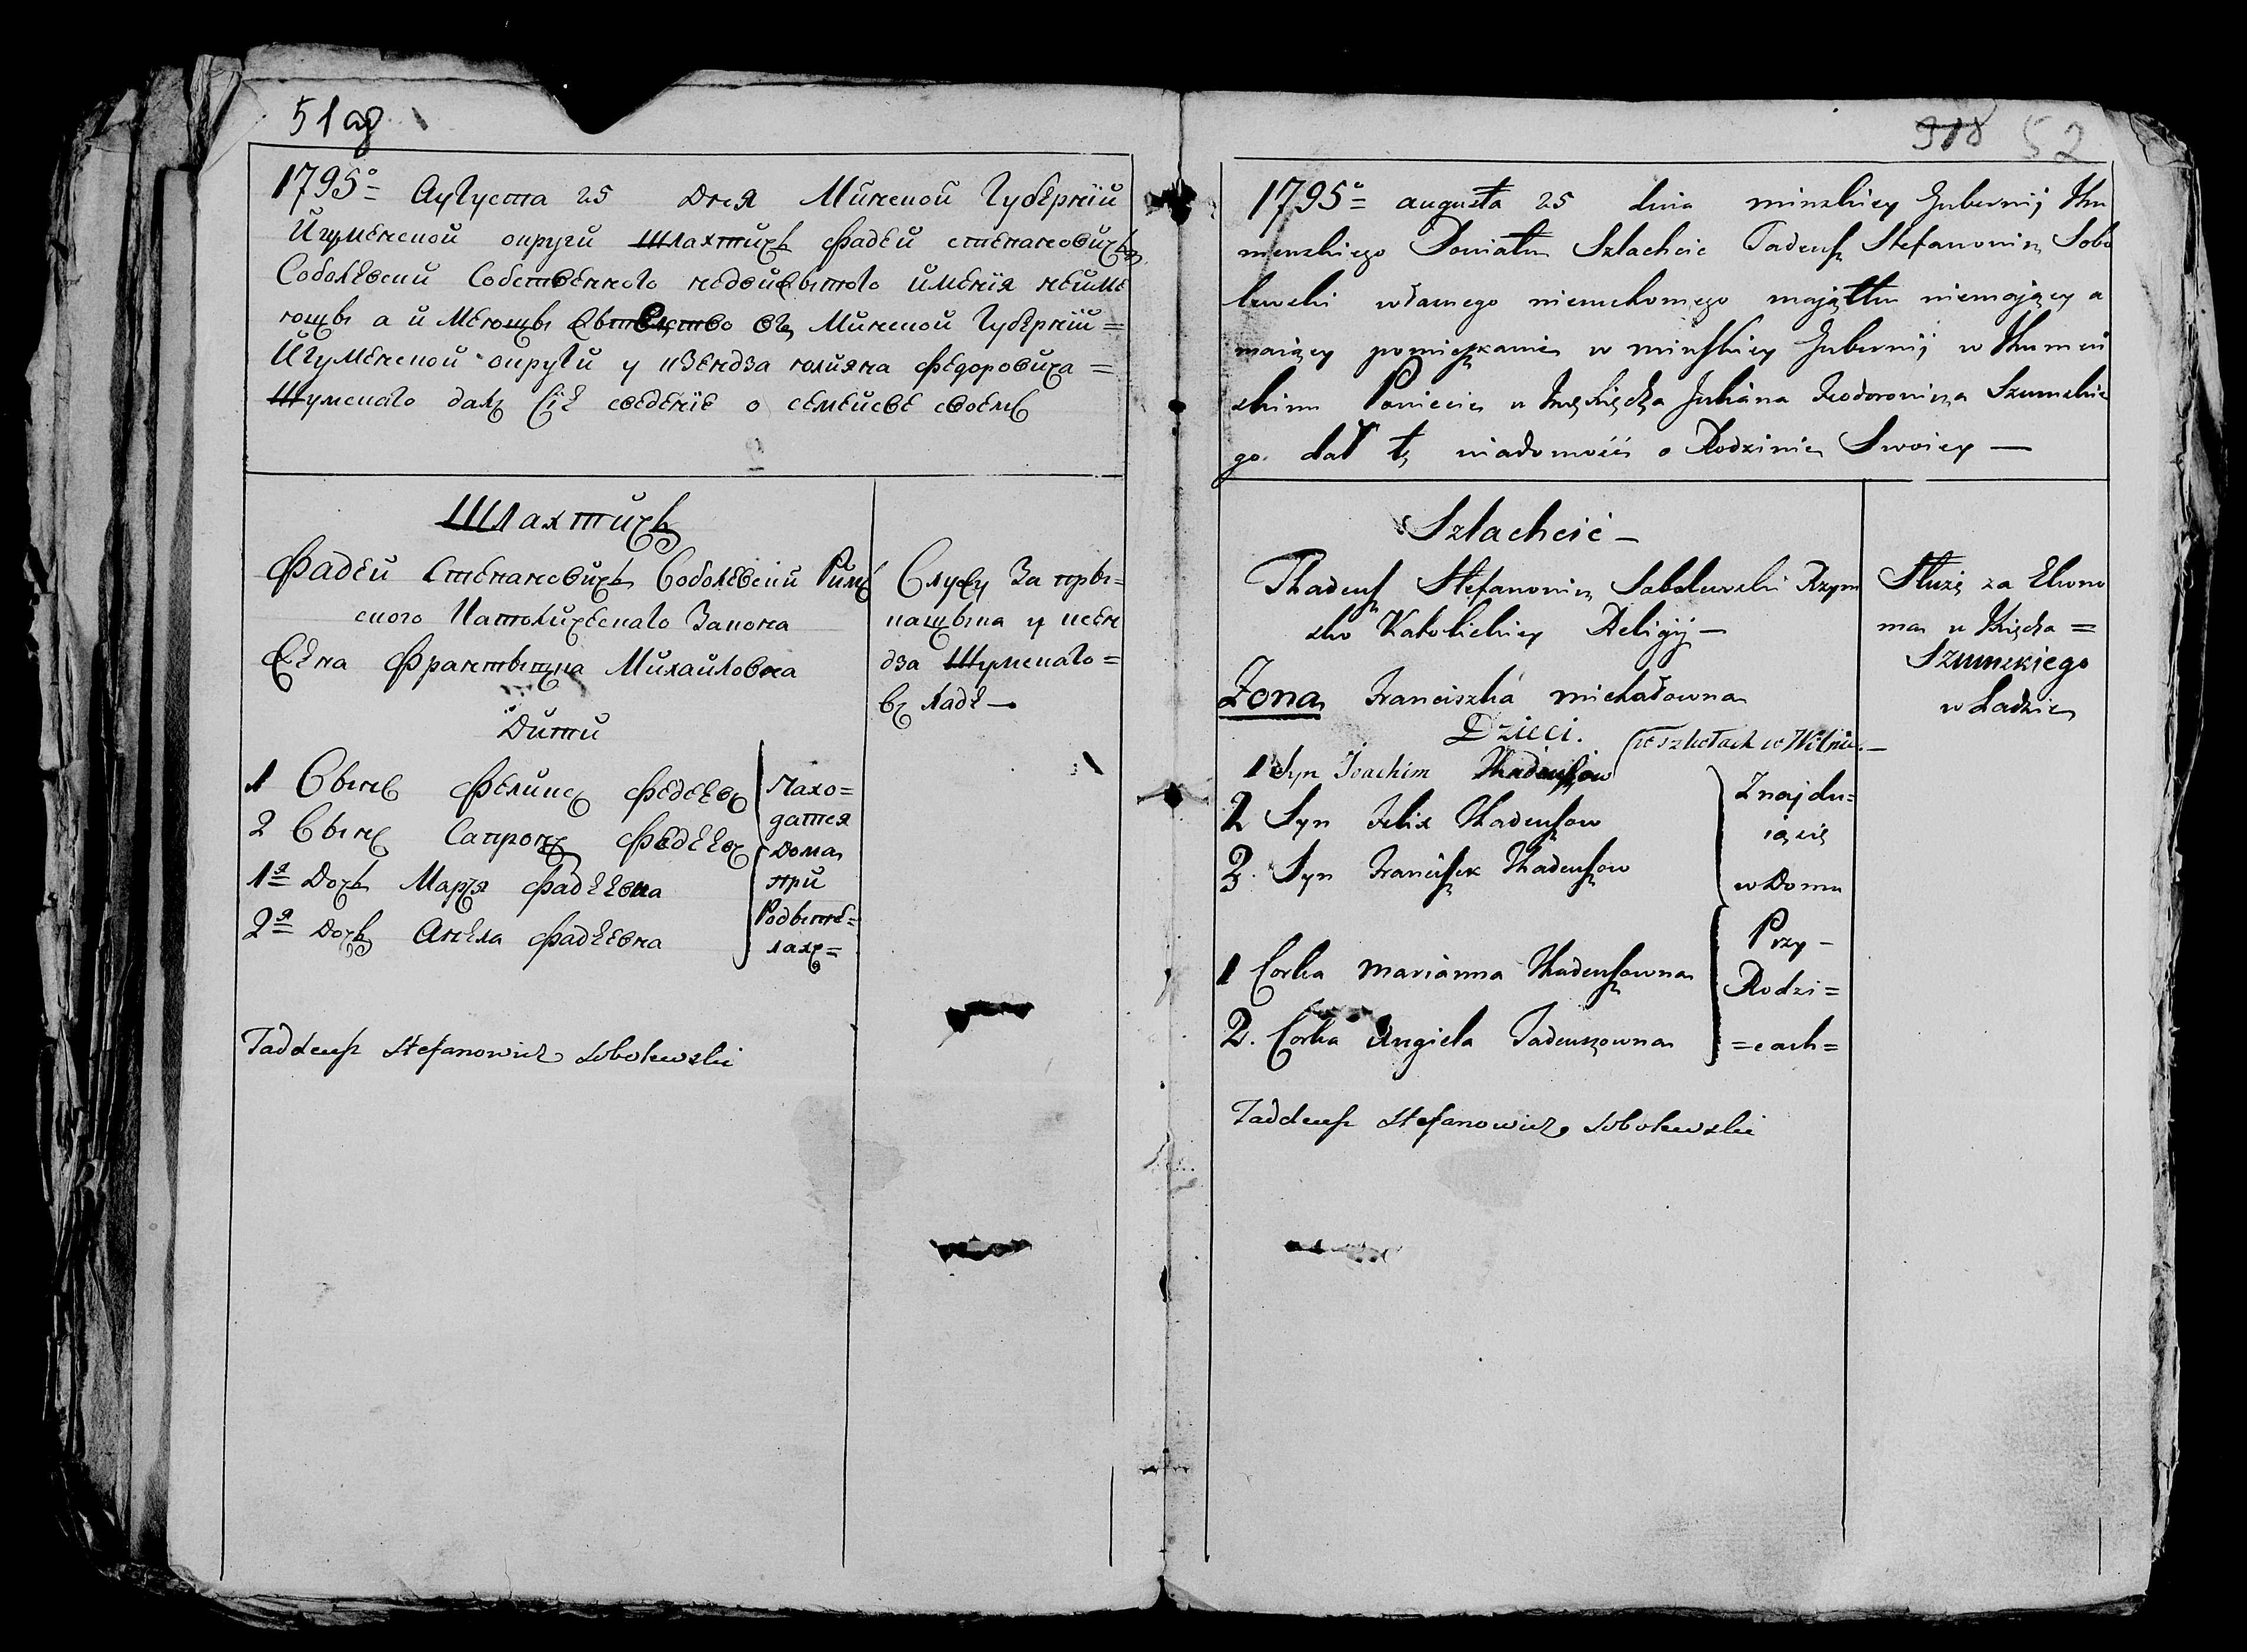 51об
1795º Августа 25 Дня Минской Губернїи
Игуменской округи Шляхтичь Фадей Степановичь
Соболевский Собственного недвижытого имения неиме
ющы а имеющы жытелство въ Минской Губернїи =
Игуменской округи у изендза юлияна Федоровича =
Шумского далъ сїе сведенїе о семейсве своемъ
Шляхтичь
Фадей Степановичь Соболевский Римъ
ского Католическаго Закона
Жена Францышка Михайловна
Дити
1 Сынъ Феликсъ Федеевъ
2 Сынъ Сапронъ Федеевъ
1я Дочь Марья Фадеевна
2я Дочь Анеля Фадеевна
Нахо=
датся
Дома
при
Родыте=
лахъ=
Служу За пры=
кащыка у ксен
дза Шумскаго=
въ Ладе —
Taddeusz Stefanowicz Sobolewski
318 52
1795º augusta 25 dnia minskiey Gubernij Ihu
menskiego Powiatu Szlachcic Tadeusz Stefanowicz Sobo
lewski własnego nieruchomego majątku niemający a
maiący pomieszkanie w minskiey Gubernij w Ihumeń
skim Powiecie u Xiędza Juliana Teodorowicza Szumskie
go dał tę wiadomość o Rodzinie Swoiey —
Szlachcic —
Thadeusz Stefanowicz Sobolewski Rzym
sko Katolickiey Religij —
Żona Franciszka michałowna
Dzieci.
1 Syn Joachim Thadeuszow (w szkołach w Wilnie. —
2 Syn Felix Thadeuszow
3. Syn Franciszek Thadeuszow
1 Corka Marianna Thadeuszowna
2. Corka Angiela Tadeuszowna
Znajdu=
ią się
w Domu
Przy —
Rodzi=
=cach=
Służę za Ekono
ma u Xiędza =
Szumskiego
w Ladzie
Taddeusz Stefanowicz Sobolewski